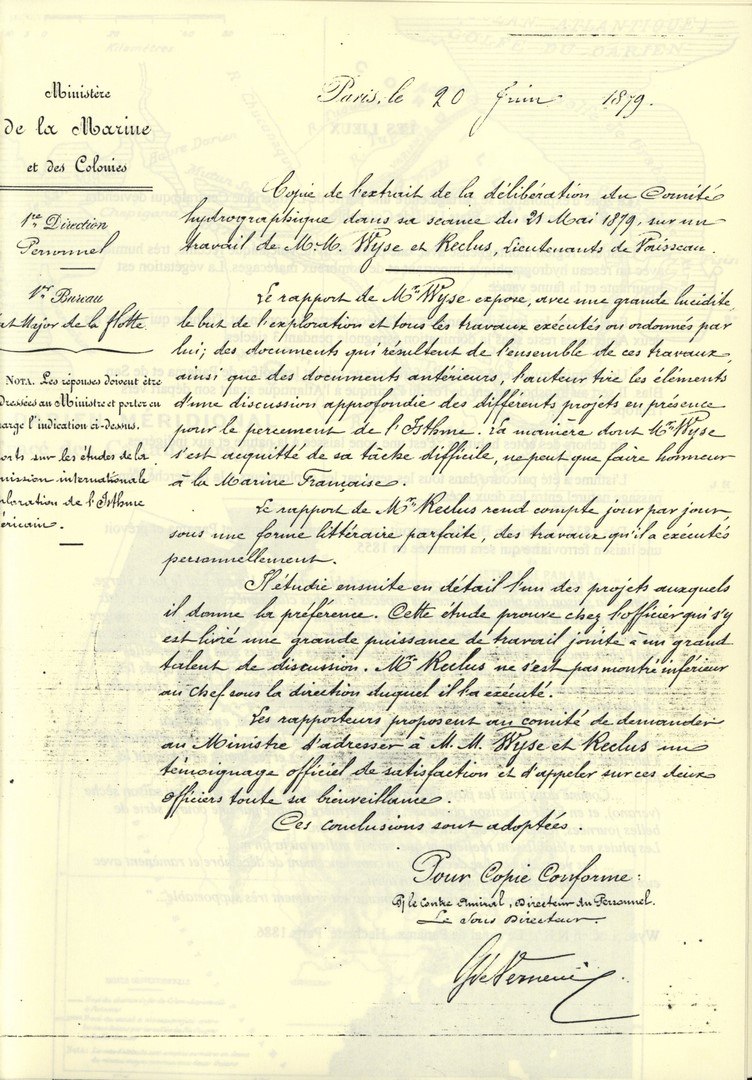 Ministère
de la Marine
et des Colonies
1re Direction
Personnel
1er Bureau
at Major de la flotte
NOTA. Les réponses doivent être
dressées au Ministre et porter en
arge l'indication ci-dessus.
orts sur les études de la
mission internationale
loration de l'Isthme
éricain.
Paris, le 20 Juin 1879.
Copie de l'extrait de la délibération du Comité
hydrographique dans sa séance du 21 Mai 1879, sur un
travail de M.M. Wyse et Reclus, Lieutenants de Vaisseau.
Le rapport de Mr Wyse expose, avec une grande lucidité,
le but de l'exploration et tous les travaux exécutés ou ordonnés par
lui; des documents qui résultent de l'ensemble de ces travaux,
ainsi que des documents antérieurs, l'auteur tire les éléments
d'une discussion approfondie des différents projets en présence
pour le percement de l'Isthme. La manière dont Mr Wyse
s'est acquitté de sa tâche difficile, ne peut que faire honneur
à la Marine Française.
Le rapport de Mr Reclus rend compte jour par jour,
sous une forme littéraire parfaite, des travaux qu'il a exécutés
personnellement.
Il étudie ensuite en détail l'un des projets auxquels
il donne la préférence. Cette étude prouve chez l'officier qui s'y
est livré une grande puissance de travail jointe à un grand
talent de discussion. Mr Reclus ne s'est pas montré inférieur
au chef sous la direction duquel il l'a exécuté.
Les rapporteurs proposent au comité de demander
au Ministre d'adresser à M.M. Wyse et Reclus un
témoignage officiel de satisfaction et d'appeler sur ces deux
officiers toute sa bienveillance.
Ces conclusions sont adoptées.
Pour Copie Conforme:
P/ le Contre Amiral, Directeur du Personnel.
Le Sous Directeur.